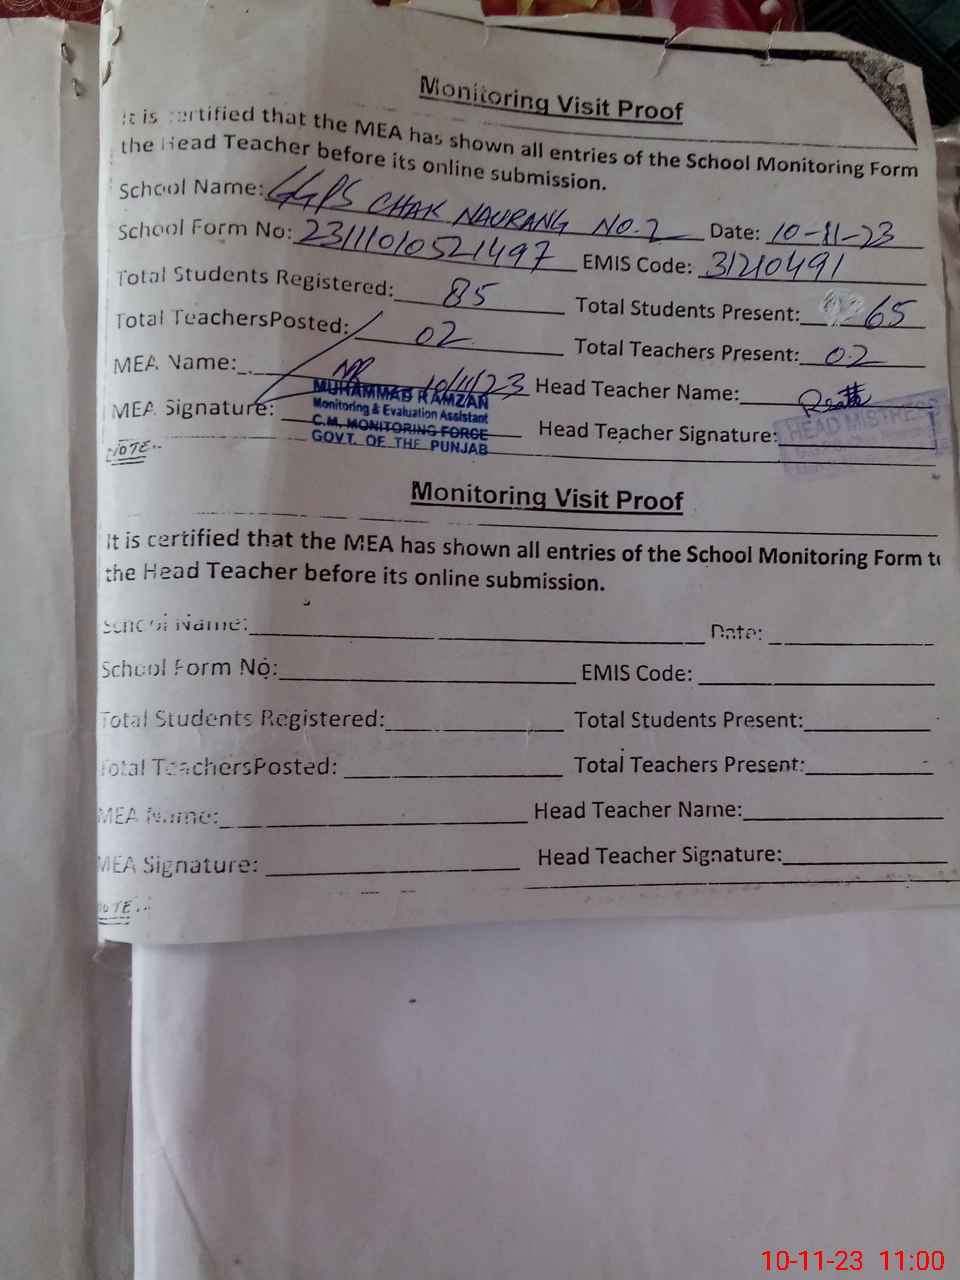 Monitoring Visit Proof
It is certified that the MEA has shown all entries of the School Monitoring Form
the Head Teacher before its online submission.
School Name: GGPS CHAK NAURANG NO.2 Date: 10-11-23
School Form No: 23111010521497 EMIS Code: 31210491
Total Students Registered: 85 Total Students Present: 65
Total TeachersPosted: 02 Total Teachers Present: 02
MEA Name: 10/11/23 Head Teacher Name:
MUHAMMAD RAMZAN
Monitoring & Evaluation Assistant
C.M. MONITORING FORCE
GOVT. OF THE PUNJAB
MEA Signature: Head Teacher Signature:
HEAD MISTRESS
NOTE..
Monitoring Visit Proof
It is certified that the MEA has shown all entries of the School Monitoring Form to
the Head Teacher before its online submission.
School Name: Date:
School Form No: EMIS Code:
Total Students Registered: Total Students Present:
Total TeachersPosted: Total Teachers Present:
MEA Name: Head Teacher Name:
MEA Signature: Head Teacher Signature:
NOTE...
10-11-23 11:00